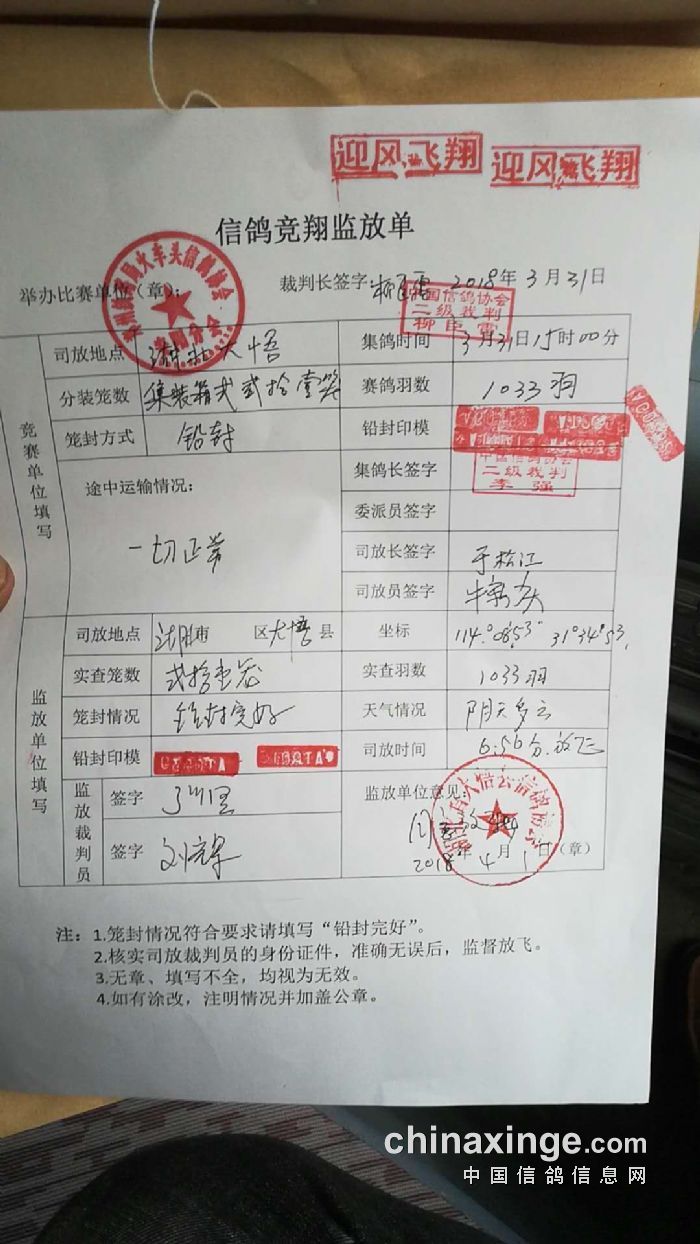 迎风飞翔 迎风飞翔
信鸽竞翔监放单
举办比赛单位（章）： 裁判长签字 2018年3月31日
火车头信鸽协会
中国信鸽协会
二级裁判
柳臣雷
竞赛单位填写
司放地点 湖北大悟 集鸽时间 3月31日15时00分
分装笼数 集装箱式贰拾壹笼 赛鸽羽数 1033羽
笼封方式 铅封 铅封印模
途中运输情况： 集鸽长签字
中国信鸽协会
二级裁判
李强
一切正常
委派员签字
司放长签字 于松江
司放员签字
监放单位填写
司放地点 湖北 市 区大悟县 坐标 114°08′53″ 31°34′53
实查笼数 实查羽数 1033羽
笼封情况 铅封完好 天气情况 阴天多云
铅封印模 司放时间 6:56分放飞
监放裁判员 签字 监放单位意见：
签字 刘
同意放飞
2018年4月1日（章）
注：1.笼封情况符合要求请填写“铅封完好”。
2.核实司放裁判员的身份证件，准确无误后，监督放飞。
3.无章、填写不全，均视为无效。
4.如有涂改，注明情况并加盖公章。
chinaxinge.com
中国信鸽信息网